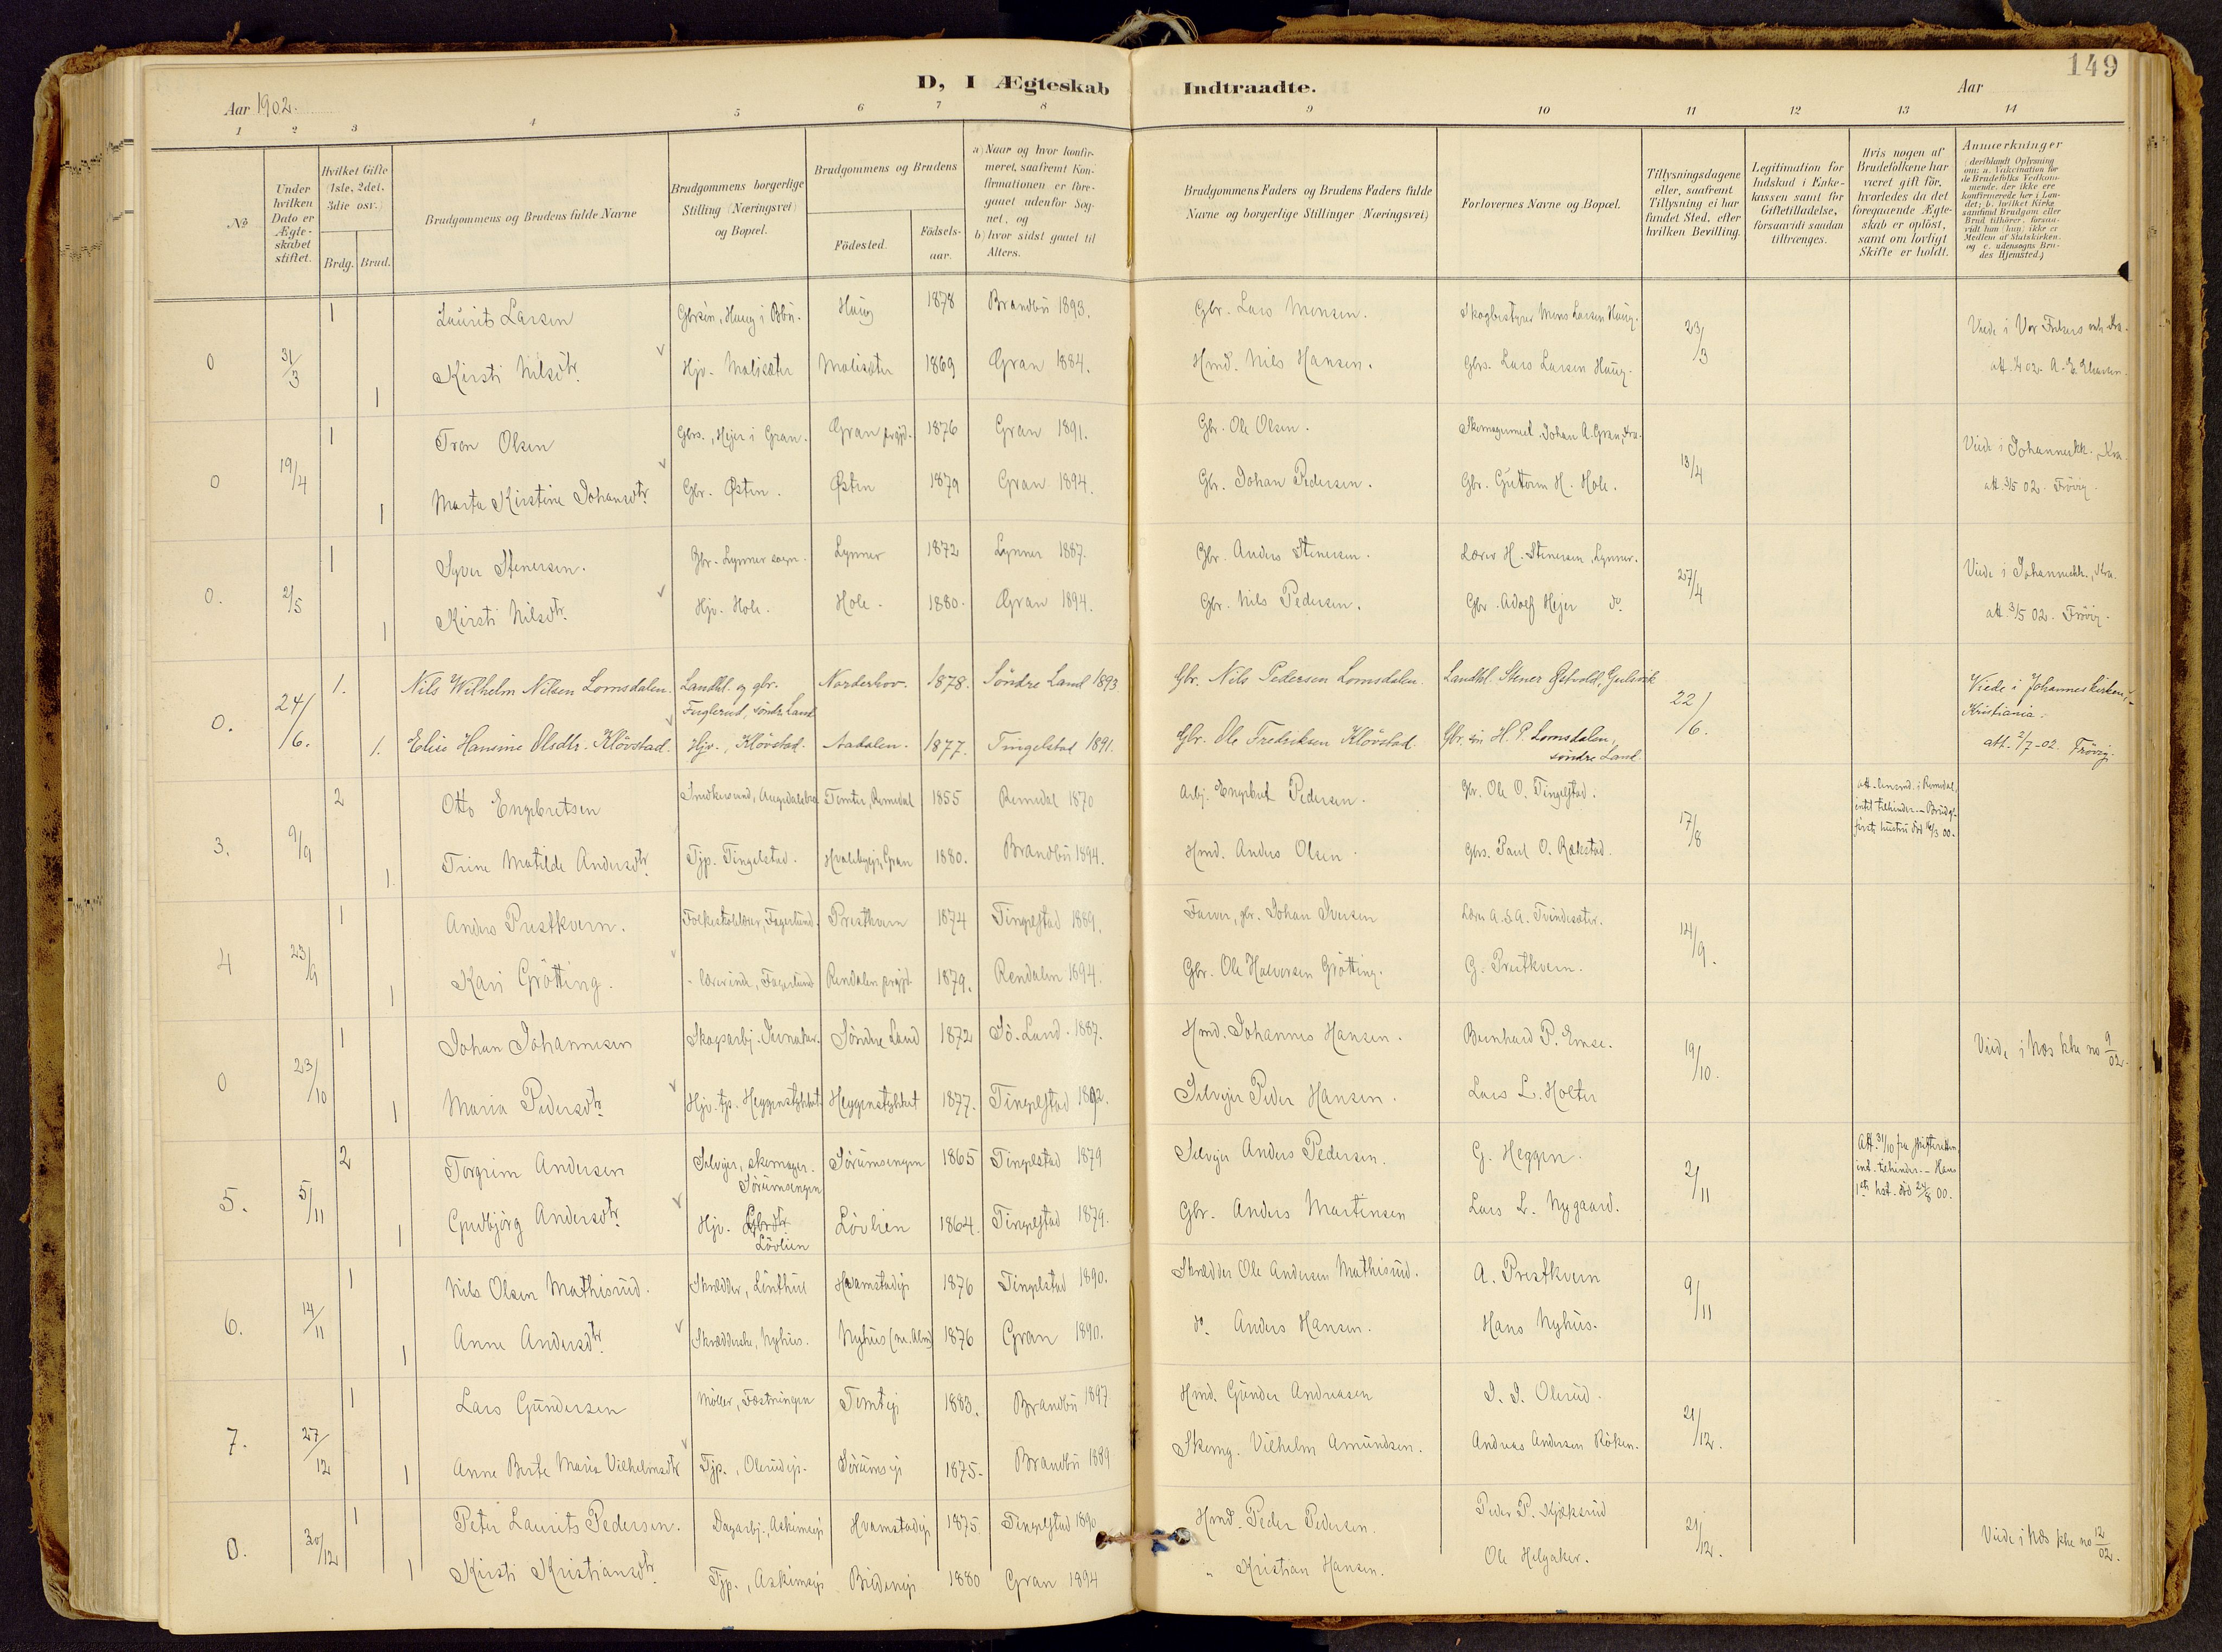 149
D, I Ægteskab Indtraadte.
Aar 1902.
Aar
1 2 3 4 5 6 7 8 9 10 11 12 13 14
№
Under hvilken Dato er Ægteskabet stiftet.
Hvilket Gifte (1ste, 2det, 3die osv.)
Brdg. Brud.
Brudgommens og Brudens fulde Navne
Brudgommens borgerlige Stilling (Næringsvei) og Bopæl.
Brudgommens og Brudens
Födested.
Födsels-aar.
a) Naar og hvor konfirmeret, saafremt Konfirmationen er foregaaet udenfor Sognet, og
b) hvor sidst gaaet til Alters.
Brudgommens Faders og Brudens Faders fulde Navne og borgerlige Stillinger (Næringsvei)
Forlovernes Navne og Bopæl.
Tillysningsdagene eller, saafremt Tillysning ei har fundet Sted, efter hvilken Bevilling.
Legitimation for Indskud i Enkekassen samt for Giftetilladelse, forsaavidt saadan tiltrænges.
Hvis nogen af Brudefolkene har været gift för, hvorledes da det foregaaende Ægteskab er oplöst, samt om lovligt Skifte er holdt.
Anmærkninger
(deriblandt Oplysning om: a. Vakcination for de Brudefolks Vedkommende, der ikke ere konfirmerede her i Landet; b. hvilket Kirkesamfund Brudgom eller Brud tilhörer, forsaavidt han (hun) ikke er Medlem af Statskirken, og c. udensogns Brudes Hjemsted.)
0 31/3 1 Laurits Larsen Gbrsön, Haug i Bbu. Haug 1878 Brandbu 1893. Gbr. Lars Monsen. Skogbestyrer Mons Larsen Haug. 23/3 Viede i Vor Frelsers
1 Kirsti Nilsdtr. Hjv. Molisæter Molisæter 1869 Gran 1884. Hmd. Nils Hansen. Gbrs. Lars Larsen Haug.
0 19/4 1 Tron Olsen Gbrs., Hejer i Gran. Gran prgjd. 1876 Gran 1891. Gbr. Ole Olsen. Johan A. Gran, Kra. 13/4 Viede i Johanneskk., Kra.
1 Marta Kirstine Johansdtr. Gbr. Østen. Østen 1879 Gran 1894. Gbr. Johan Pedersen. Gbr. Guttorm H. Hole. att. 3/5 02. Frövig.
0. 2/5 1 Syver Stenersen. Gbr. Lynner sogn. Lynner 1872 Lynner 1887. Gbr. Anders Stenersen. Lærer H. Stenersen, Lynner. 27/4 Viede i Johanneskk., Kra.
1 Kirsti Nilsdtr. Hjv. Hole. Hole. 1880. Gran 1894. Gbr. Nils Pedersen. Gbr. Adolf Hejer do. att. 3/5 02. Frövig.
0. 24/6. 1. Nils Wilhelm Nilsen Lomsdalen. Landhl. og gbr. Fuglerud, söndr. Land Norderhov. 1878. Söndre Land 1893 Gbr. Nils Pedersen Lomsdalen. Landhl. Stener Østvold, Gulsvik 22/6. Viede i Johanneskirken, Kristiania.
1. Elise Hansine Olsdtr. Klövstad. Hjv., Klövstad. Aadalen. 1877. Tingelstad 1891. Gbr. Ole Fredriksen Klövstad. Gbr. sön H. P. Lomsdalen, söndre Land. att. 2/7-02. Frövig.
3. 9/9 2 Otto Engebretsen Tomter, Romedal 1855 Romedal 1870 Arbj. Engebret Pedersen. Gbr. Ole O. Tingelstad. 17/8 att. lensmd. i Romedal, intet tilhinder. - Brudg. förste hustru död 16/3 00.
1. Trine Matilde Andersdtr. Tjp. Tingelstad. Hvalebyejr, Gran 1880. Brandbu 1894. Hmd. Anders Olsen. Gbrs. Paul O. Rækstad.
4 23/9 1 Anders Prestkvern. Folkeskolelærer, Fagerlund. Prestkvern 1874 Tingelstad 1889. Farver, gbr. Johan Iversen Lærer A. S. A. Tvindesæter. 14/9.
1 Kari Grötting. - lærerinde, Fagerlund Rendalen prgjd. 1879. Rendalen 1894. Gbr. Ole Halvorsen Grötting. G. Prestkvern.
0 23/10 1 Johan Johannesen Skogsarbj. Söndre Land 1872 Sö. Land. 1887. Hmd. Johannes Hansen. Bernhard P. Emse. 19/10. Viede i Næs kke no 9/02.
1 Maria Pedersdtr. Hjv. tjp. Heggenstykket Heggenstykket 1877. Tingelstad 1892. Selvejer Peder Hansen. Lars L. Holter
5. 5/11 2 Torgrim Andersen Selvejer, skomager. Sörumsengen Sörumsengen 1865 Tingelstad 1879 Selvejer Anders Pedersen. G. Heggen. 2/11 Att. 31/10 fra skifteretten, int. tilhinder. - Hans 1ste hst. död 24/8 00.
1 Gudbjörg Andersdtr. Hjv. Gbrdtr. Lövlien Lövlien 1864. Tingelstad 1879. Gbr. Anders Martinsen Lars L. Nygaard.
6. 14/11 1 Nils Olsen Mathisrud. Skrædder, Linthue Hvamstadejr 1876 Tingelstad 1890. Skrædder Ole Andersen Mathisrud. A. Prestkvern 9/11
1 Anne Andersdtr. Skrædderske, Nyhus. Nyhus 1876 Gran 1890. do. Anders Hansen. Hans Nyhus.
7. 27/12 1 Lars Gundersen Möller, Fæstningen Tomtejr 1883. Brandbu 1897 Hmd. Gunder Andreasen I. I. Olerud. 21/12.
1 Anne Berte Maria Vilhelmsdtr. Tjp., Olerudejr. Sörumsejr 1875. Brandbu 1889 Skomg. Vilhelm Amundsen. Andreas Andersen Röken.
0. 30/12 1 Peter Laurits Pedersen. Dagarbj., Askimsejr Hvamstadejr 1875 Tingelstad 1890 Hmd. Peder Pedersen. Peder P. Kjæksrud 21/12. Viede i Næs kke no 12/02.
1 Kirsti Kristiansdtr. Tjp., Askimsejr 1880 Gran 1894 " Kristian Hansen. Ole Helgaker.